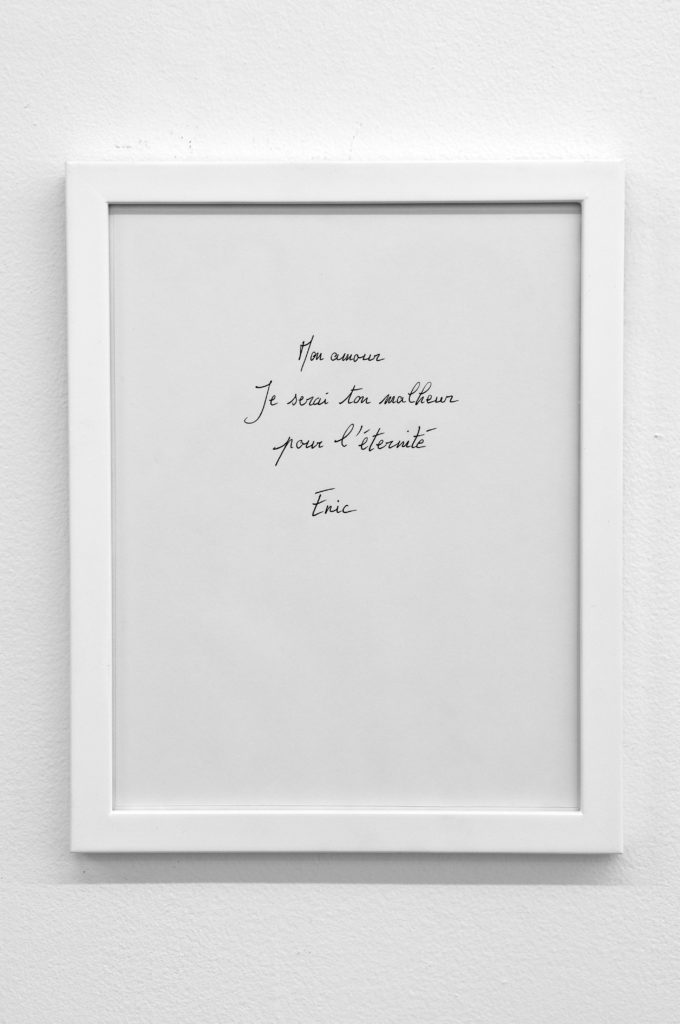 Mon amour
Je serai ton malheur
pour l'éternité
Eric